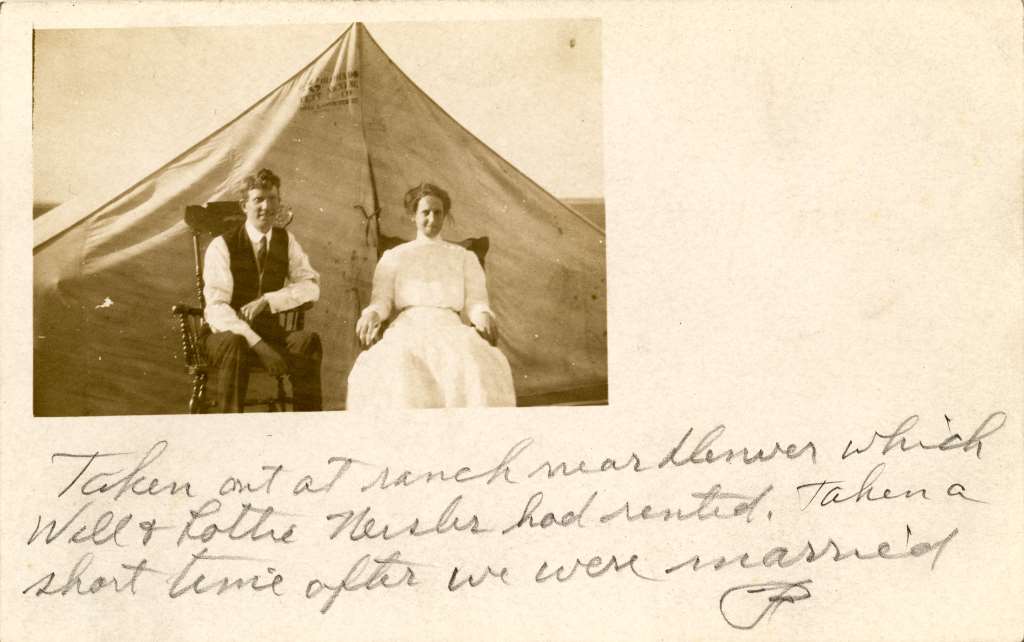 Taken out at ranch near Denver which
Will & Lottie Neisler had rented. Taken a
short time after we were married